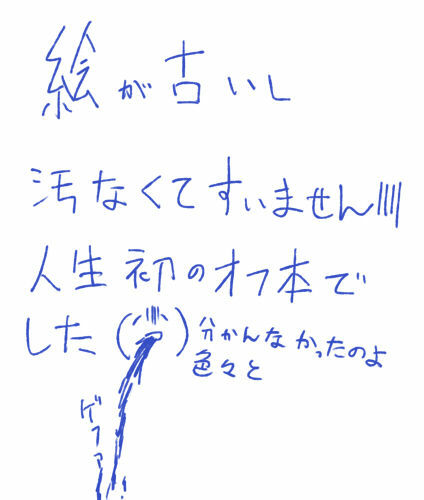 絵が古いし
汚なくてすいません
人生初のオフ本で
した
分かんなかったのよ
色々と
ゲファァ!